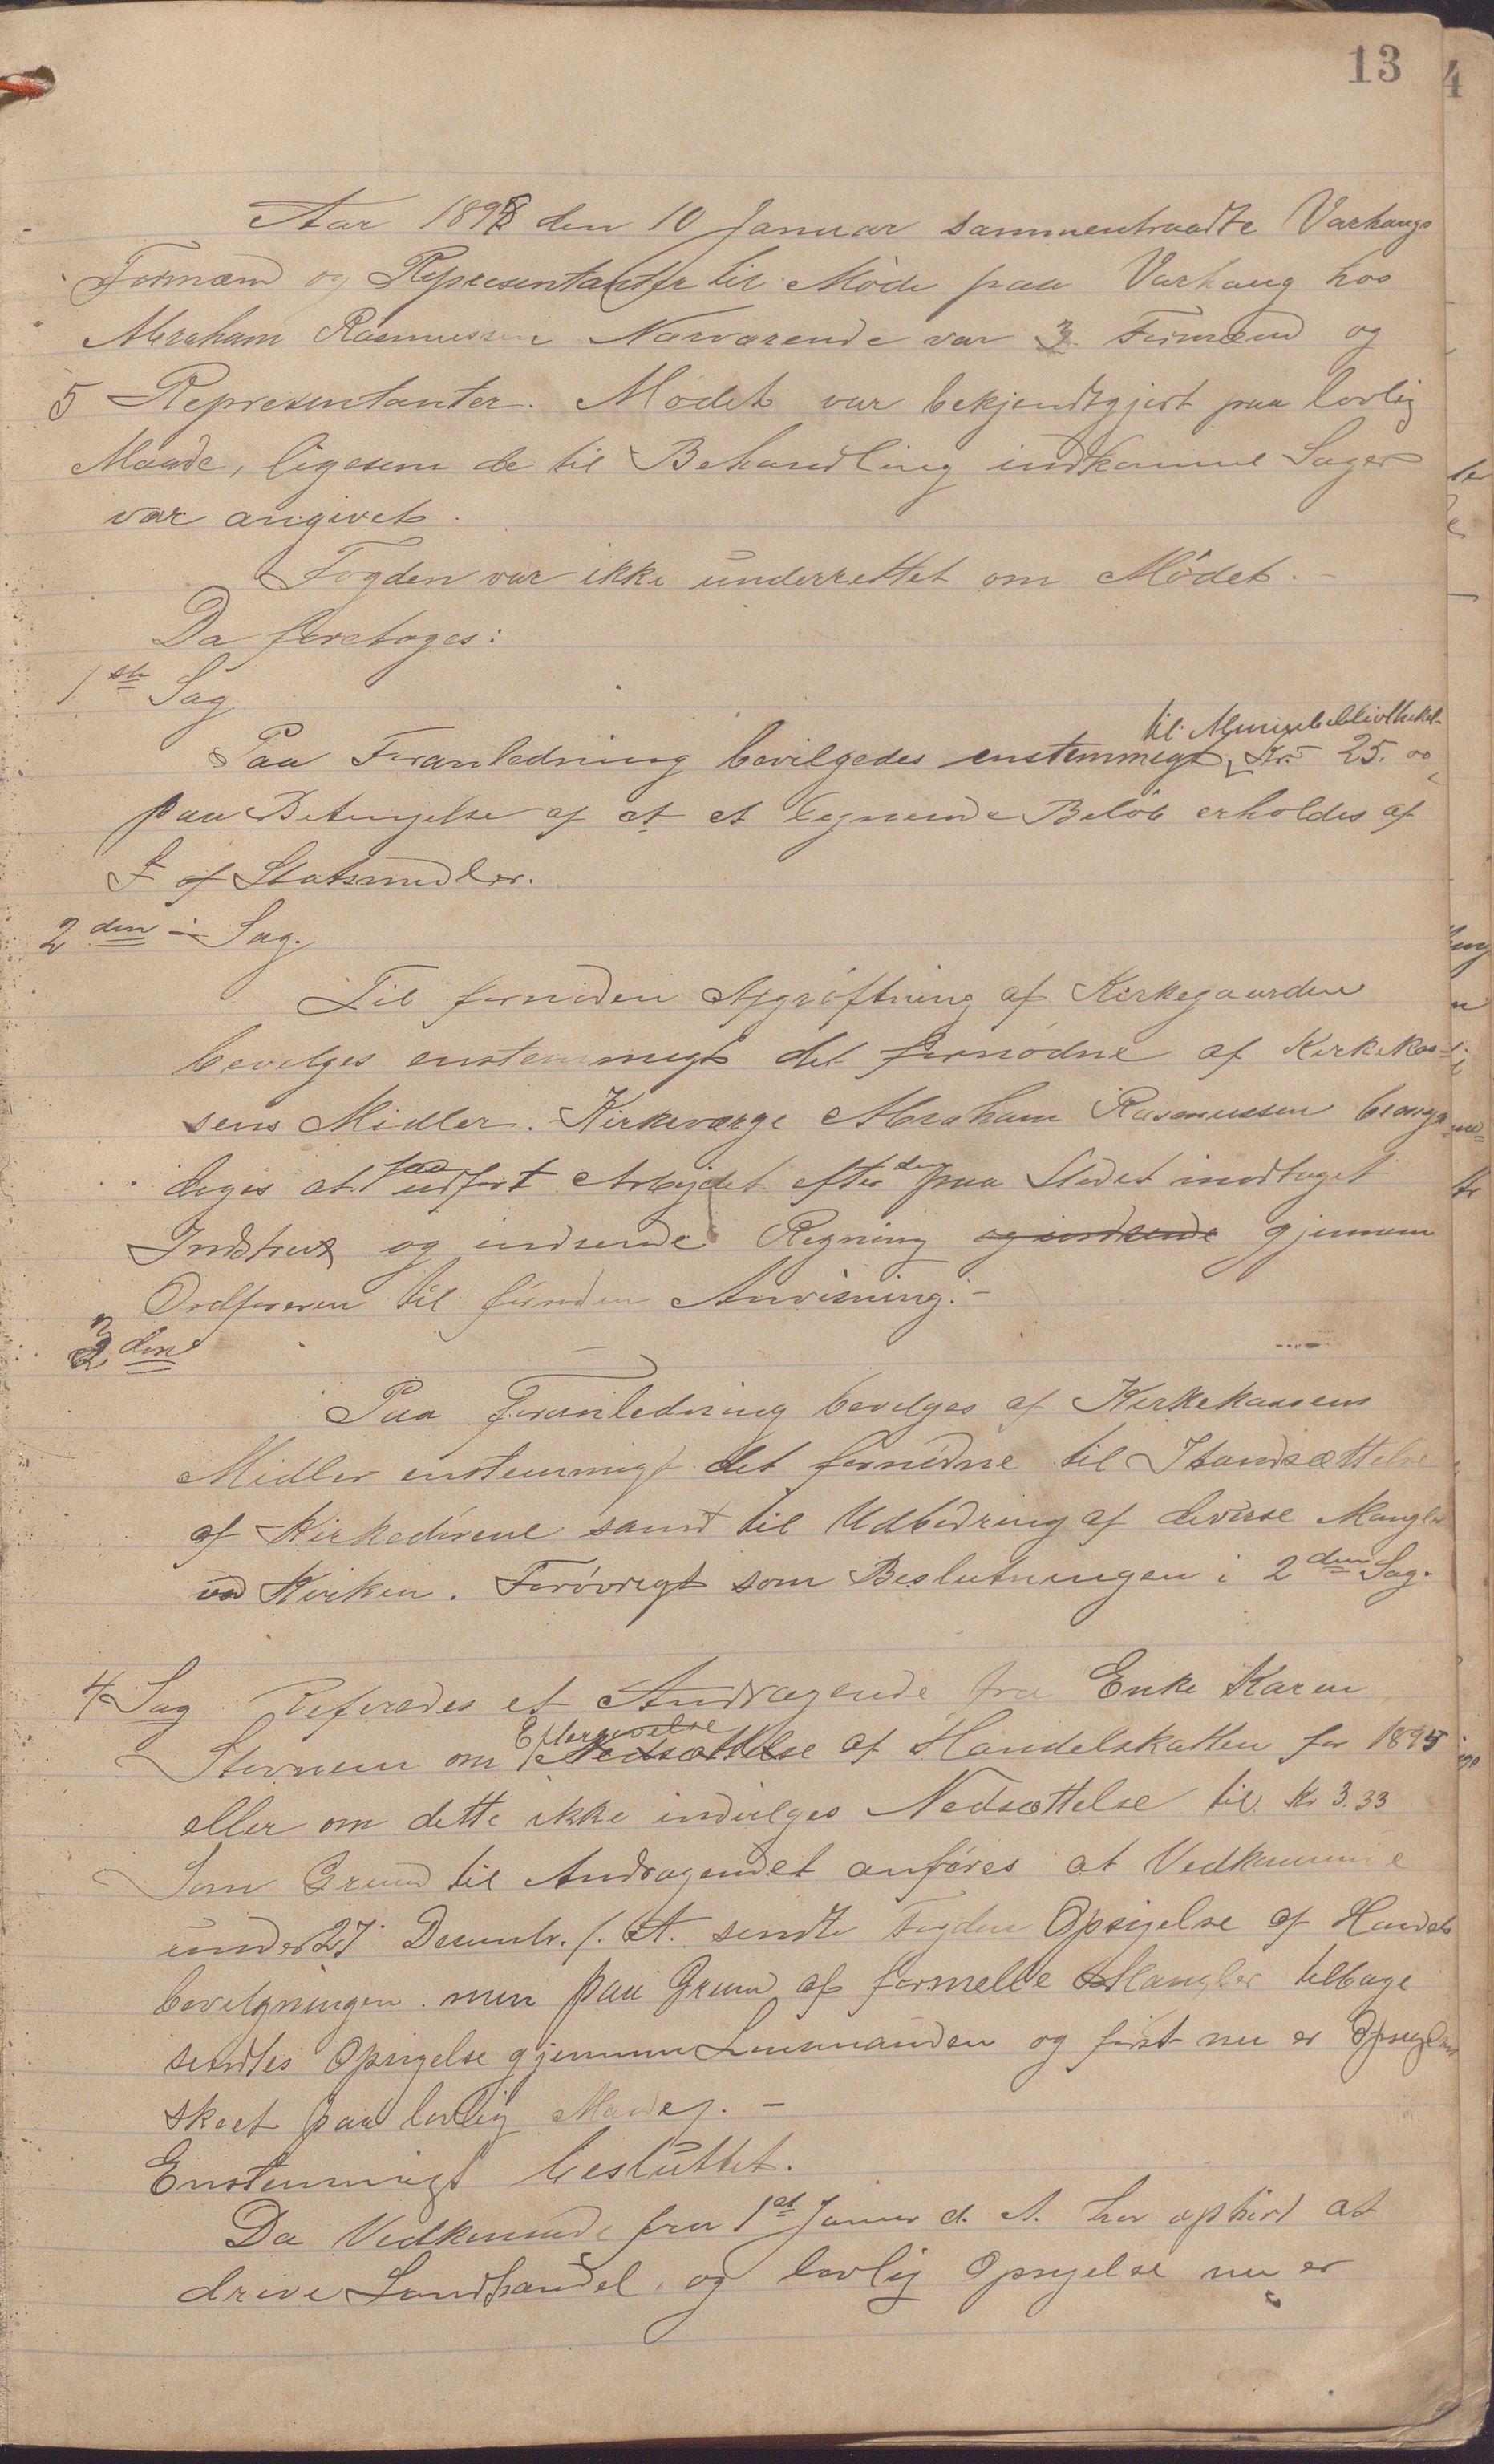 13
Aar 1895 den 10 Januar sammentraadte Varhaugs
Formænd og Repræsentanter til Møde paa Varhaug hos
Abraham Rasmussen Nærværende var 3 Formænd og
5 Repræsentanter. Mødet var bekjendtgjort paa lovlig
Maade, ligesom de til Behandling indkomne Sager
var angivet.
Fogden var ikke underrettet om Mødet. -
Da foretoges:
1ste Sag
Paa Foranledning bevilgedes enstemmigt til Almuebibliothekel Kr. 25.00
paa Betingelse af at et lignende Beløb erholdes af
af Statsmidler.
2den Sag.
Til fornøden Afgrøftning af Kirkegaarden
bevilges enstemmigt det fornødne af Kirkekas-
sens Midler. Kirkeværge Abraham Rasmussen bemyn-
diges at faa udført Arbejdet efter den paa Stedet modtaget
Instrux og indsende Regning og indsende gjennem
Ordføreren til fornøden Anvisning. -
3die
Paa Foranledning bevilges af Kirkekassens
Midler enstemmigt det fornødne til Istandsættelse
af Kirkedørene samt til Udbedring af diverse Mangler
ved Kirken. Forøvrigt som Beslutningen i 2den Sag.
4 Sag Refereredes et Andragende fra Enke Karen
om Eftergivelse Nedsættelse af Handelskatten for 1895
eller om dette ikke indvilges Nedsættelse til Kr 3.33
Som Grund til Andragendet anføres at Vedkommende
under 27 Decembr. f. A. sendte Fogden Opsigelse af Handels
bevilgningen men paa Grund af formelle Mangler tilbage
sendtes Opsigelse gjennem Lensmanden og først nu er Opsigelsen
skeet paa lovlig Maade. -
Enstemmigt besluttet.
Da Vedkommende fra 1st Januar d. A. har ophørt at
drive Landhandel og lovlig Opsigelse nu er